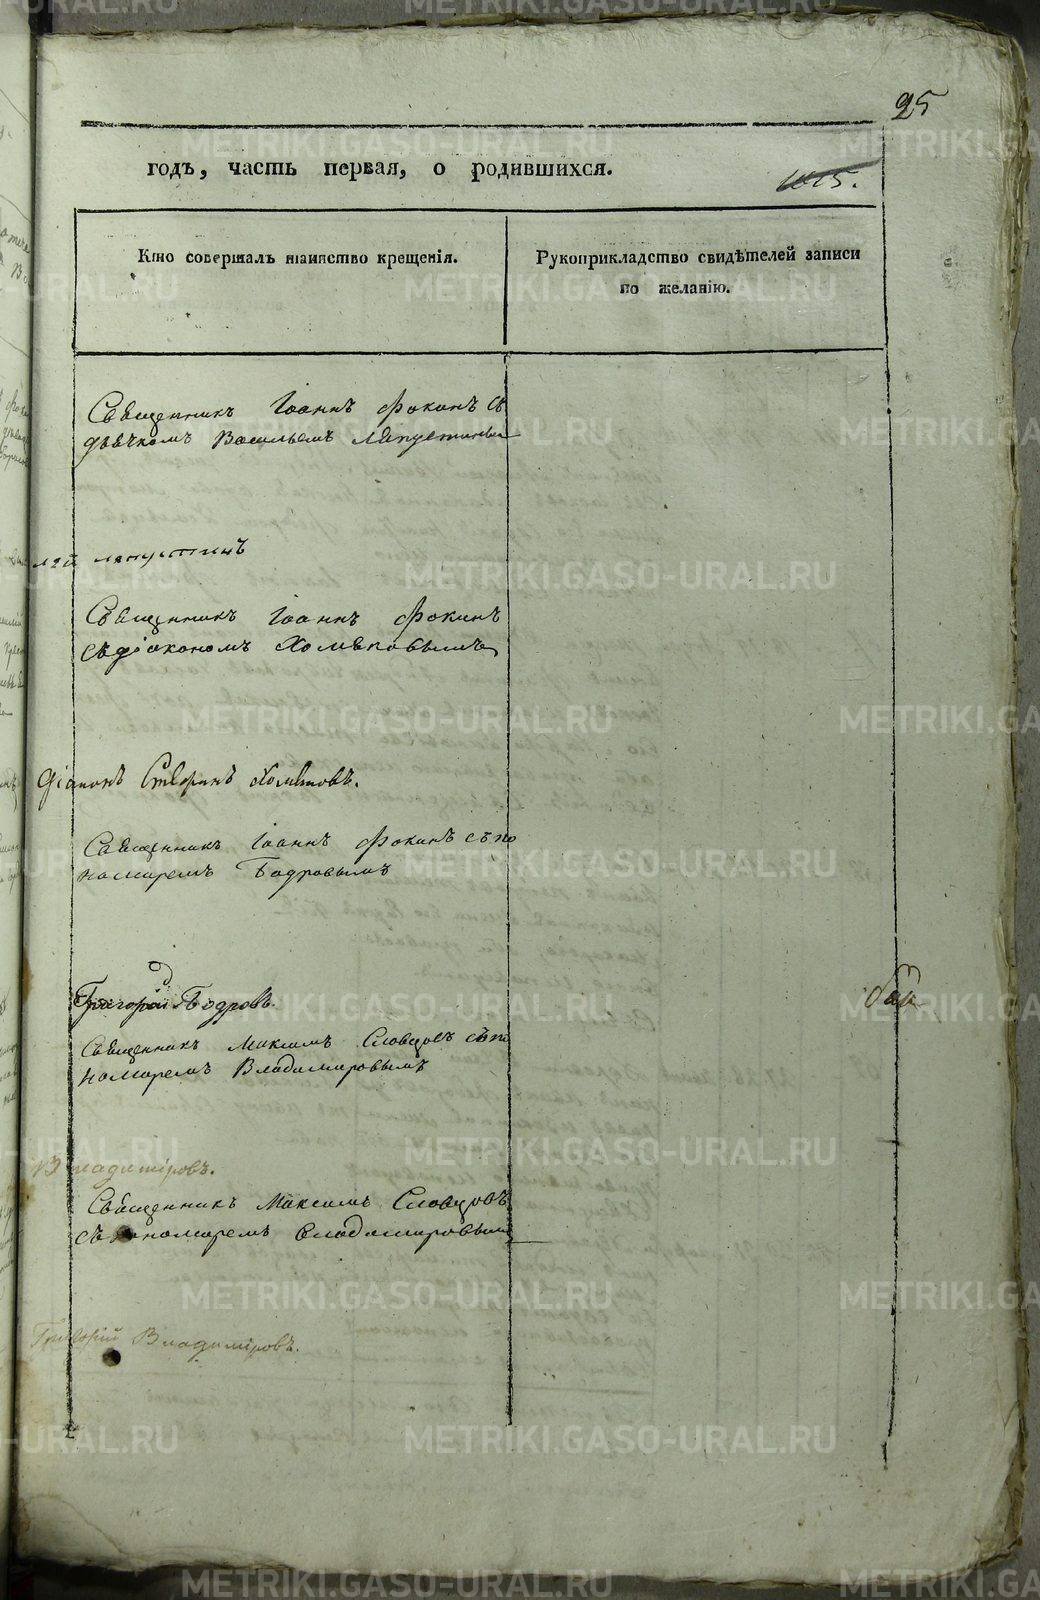 25
годъ, часть первая, о родившихся.
Кто совершалъ таинство крещенія.
Рукоприкладство свидѣтелей записи
по желанію.
Священникъ Іоаннъ Фокинъ съ
дьячкомъ Васильемъ Лапустинымъ
лей Лапустинъ
Священникъ Іоаннъ Фокинъ
съ діакономъ Хомяковымъ
Діаконъ Хомяковъ.
Священникъ Іоаннъ Фокинъ съ по
номаремъ Бодровымъ
Григорій Бодровъ.
Священникъ Максимъ Словцовъ съ по
номаремъ Владимировымъ
Владиміровъ.
Священникъ Максимъ Словцовъ
съ пономаремъ Владимировымъ
Григорій Владиміровъ.
METRIKI.GASO-URAL.RU